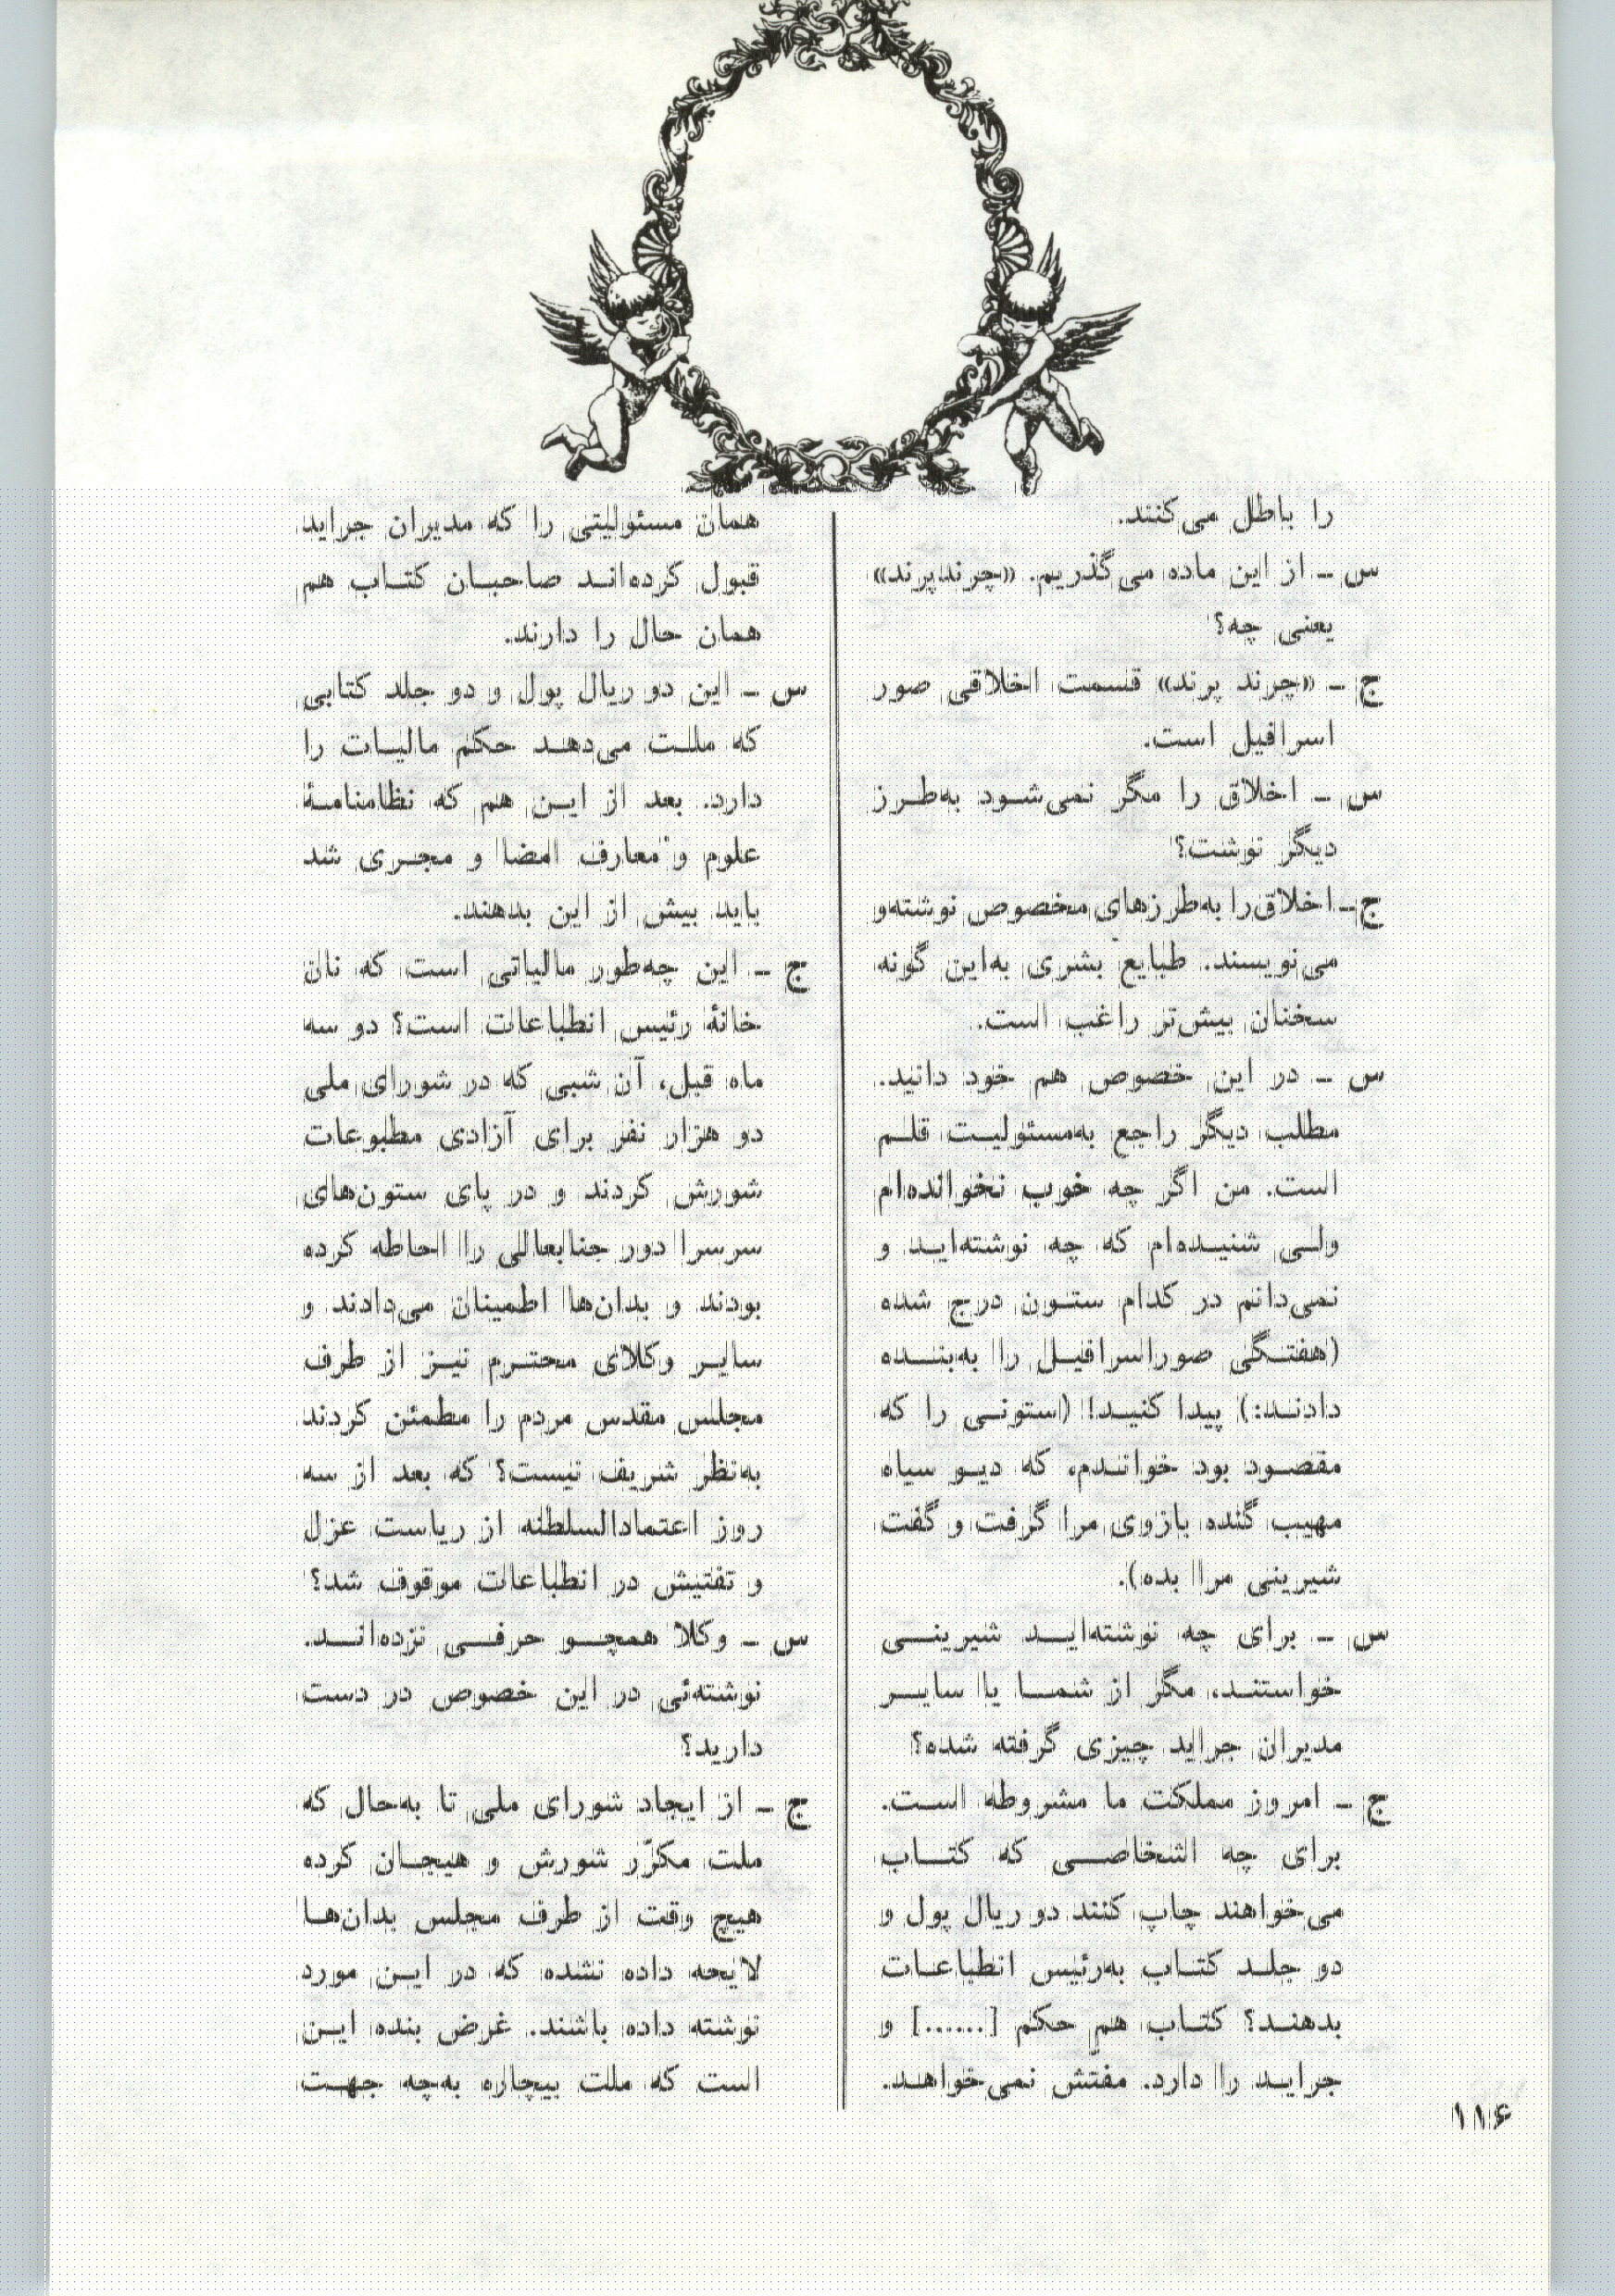 را باطل می‌کنند.
س ـ از این ماده می‌گذریم. «چرند پرند»
یعنی چه؟
ج ـ «چرند پرند» قسمت اخلاقی صور
اسرافیل است.
س ـ اخلاق را مگر نمی‌شود به‌طرز
دیگر نوشت؟
ج ـ اخلاق را به‌طرزهای مخصوص نوشته‌و
می‌نویسند. طبایع بشری به‌این گونه
سخنان بیش‌تر راغب است.
س ـ در این خصوص هم خود دانید.
مطلب دیگر راجع به‌مسئولیت قلم
است. من اگر چه خوب نخوانده‌ام
ولی شنیده‌ام که چه نوشته‌اید و
نمی‌دانم در کدام ستون درج شده
(هفتگی صوراسرافیل را به‌بنده
دادند:) پیدا کنید! (ستونی را که
مقصود بود خواندم، که دیو سیاه
مهیب گنده بازوی مرا گرفت و گفت
شیرینی مرا بده).
س ـ برای چه نوشته‌اید شیرینی
خواستند، مگر از شما یا سایر
مدیران جراید چیزی گرفته شده؟
ج ـ امروز مملکت ما مشروطه است.
برای چه اشخاصی که کتاب
می‌خواهند چاپ کنند دو ریال پول و
دو جلد کتاب به‌رئیس انطباعات
بدهند؟ کتاب هم حکم [......] و
جراید را دارد. مفتش نمی‌خواهد.
همان مسئولیتی را که مدیران جراید
قبول کرده‌اند صاحبان کتاب هم
همان حال را دارند.
س ـ این دو ریال پول و دو جلد کتابی
که ملت می‌دهد حکم مالیات را
دارد. بعد از این هم که نظامنامهٔ
علوم و معارف امضا و مجری شد
باید بیش از این بدهند.
ج ـ این چه‌طور مالیاتی است که نان
خانهٔ رئیس انطباعات است؟ دو سه
ماه قبل، آن شبی که در شورای ملی
دو هزار نفر برای آزادی مطبوعات
شورش کردند و در پای ستون‌های
سرسرا دور جنابعالی را احاطه کرده
بودند و بدان‌ها اطمینان می‌دادند و
سایر وکلای محترم نیز از طرف
مجلس مقدس مردم را مطمئن کردند
به‌نظر شریف نیست؟ که بعد از سه
روز اعتمادالسلطنه از ریاست عزل
و تفتیش در انطباعات موقوف شد؟
س ـ وکلا همچو حرفی نزده‌اند.
نوشته‌ئی در این خصوص در دست
دارید؟
ج ـ از ایجاد شورای ملی تا به‌حال که
ملت مکرّر شورش و هیجان کرده
هیچ وقت از طرف مجلس بدان‌ها
لایحه داده نشده که در این مورد
نوشته داده باشند. غرض بنده این
است که ملت بیچاره به‌چه جهت
۱۱۶